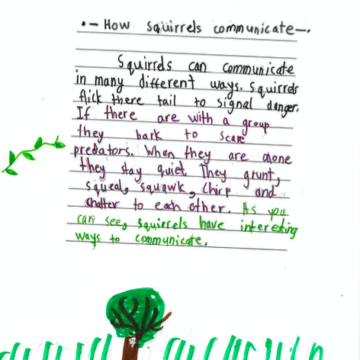 •— How squirrels communicate —.
Squirrels can communicate
in many different ways. Squirrels
flick there tail to signal danger.
If there are with a group
they bark to scare
predators. When they are alone
they stay quiet. They grunt,
squeal, squawk, chirp and
chatter to each other. As you
can see, squirrels have interesting
ways to communicate.